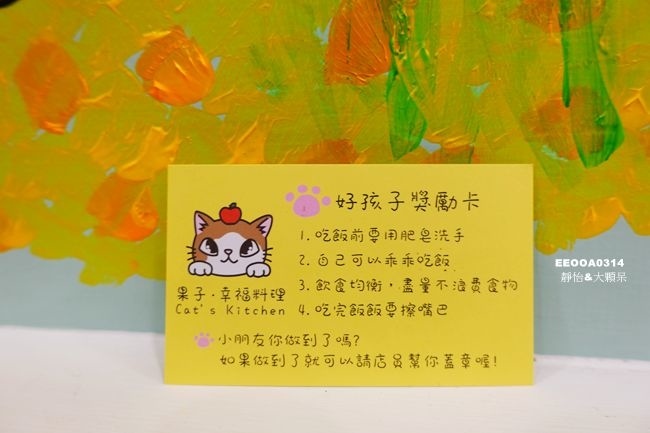 好孩子獎勵卡
1. 吃飯前要用肥皂洗手
2. 自己可以乖乖吃飯
3. 飲食均衡，盡量不浪費食物
4. 吃完飯飯要擦嘴巴
果子·幸福料理
Cat's Kitchen
小朋友你做到了嗎?
如果做到了就可以請店員幫你蓋章喔!
EEOOA0314
靜怡&大顆呆